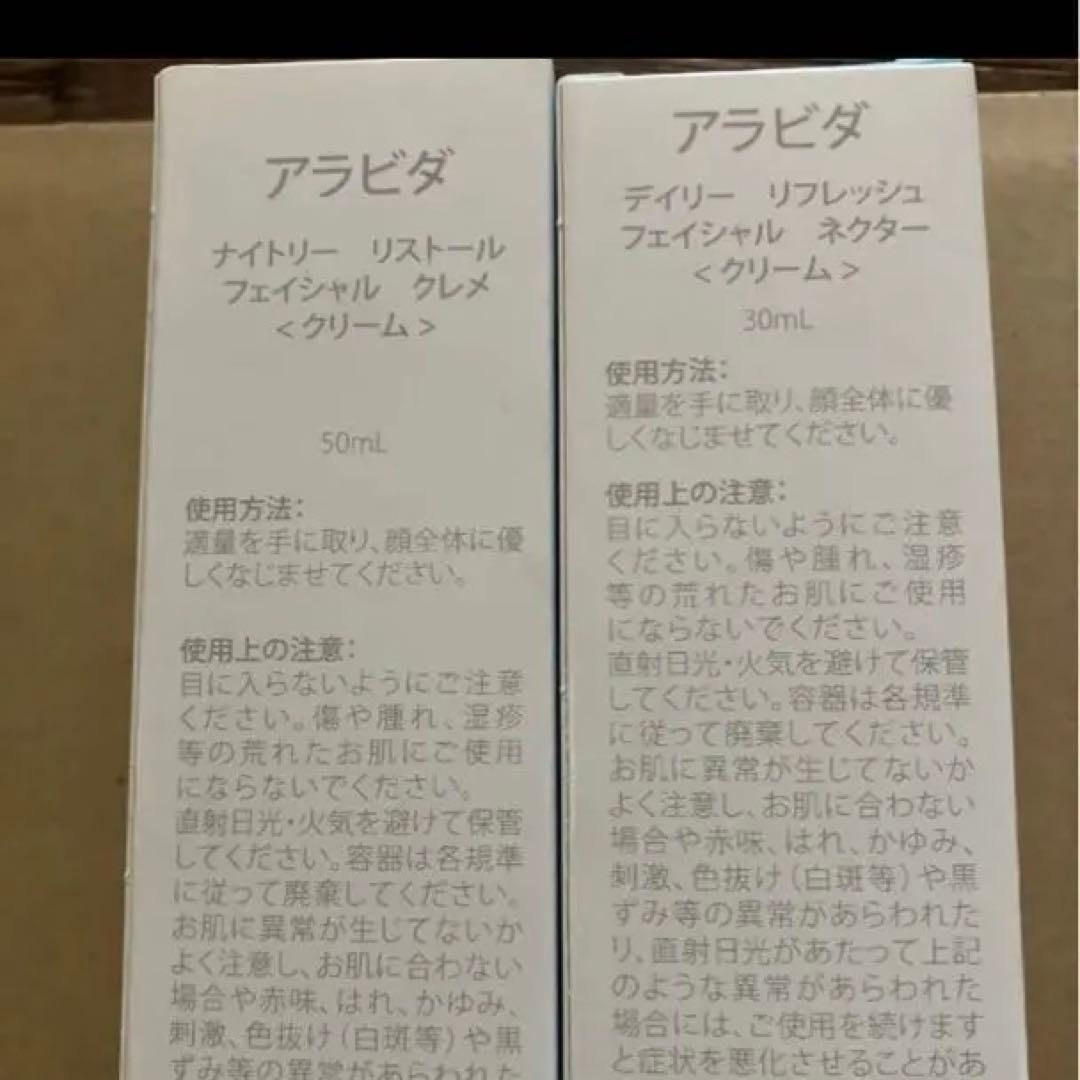 アラビダ
ナイトリー　リストール
フェイシャル　クレメ
<クリーム>
50mL
使用方法：
適量を手に取り、顔全体に優
しくなじませてください。
使用上の注意：
目に入らないようにご注意
ください。傷や腫れ、湿疹
等の荒れたお肌にご使用
にならないでください。
直射日光・火気を避けて保管
してください。容器は各規準
に従って廃棄してください。
お肌に異常が生じてないか
よく注意し、お肌に合わない
場合や赤味、はれ、かゆみ、
刺激、色抜け（白斑等）や黒
ずみ等の異常があらわれた
アラビダ
デイリー　リフレッシュ
フェイシャル　ネクター
<クリーム>
30mL
使用方法：
適量を手に取り、顔全体に優
しくなじませてください。
使用上の注意：
目に入らないようにご注意
ください。傷や腫れ、湿疹
等の荒れたお肌にご使用
にならないでください。
直射日光・火気を避けて保管
してください。容器は各規準
に従って廃棄してください。
お肌に異常が生じてないか
よく注意し、お肌に合わない
場合や赤味、はれ、かゆみ、
刺激、色抜け（白斑等）や黒
ずみ等の異常があらわれた
り、直射日光があたって上記
のような異常があらわれた
場合には、ご使用を続けます
と症状を悪化させることがあ